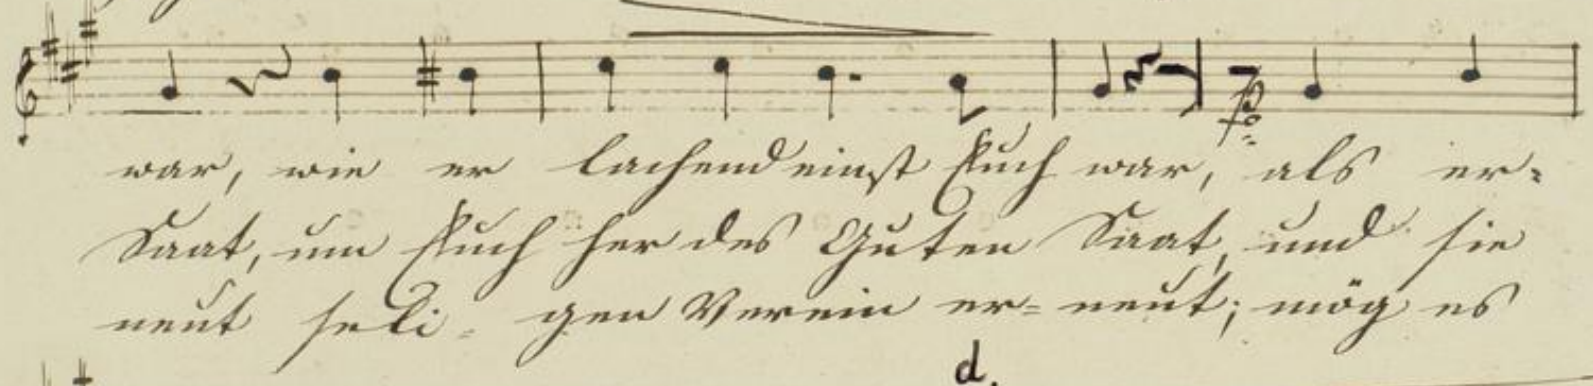 p
war, wie er lachend einst Euch war, als er=
Saat, um Euch her des Guten Saat, und sie
neut seli- gen Verein er= neut; mög es
d.